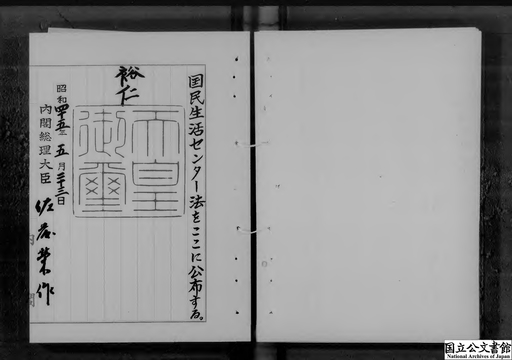 国民生活センター法をここに公布する。
裕仁
天皇
御璽
昭和四十五年五月二十三日
内閣総理大臣 佐藤榮作
国立公文書館
National Archives of Japan